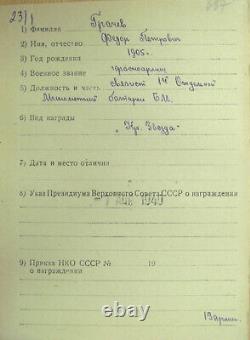 23/1
1) Фамилия Грачев
2) Имя, отчество Федор Петрович
3) Год рождения 1905г.
4) Военное звание красноармеец
5) Должность и часть связист 1й Отдельной
Минометной батареи Б.М.
6) Вид награды
"Кр. Звезда"
7) Дата и место отличия
8) Указ Президиума Верховного Совета СССР о награждении
1949
9) Приказ НКО СССР № 19
о награждении